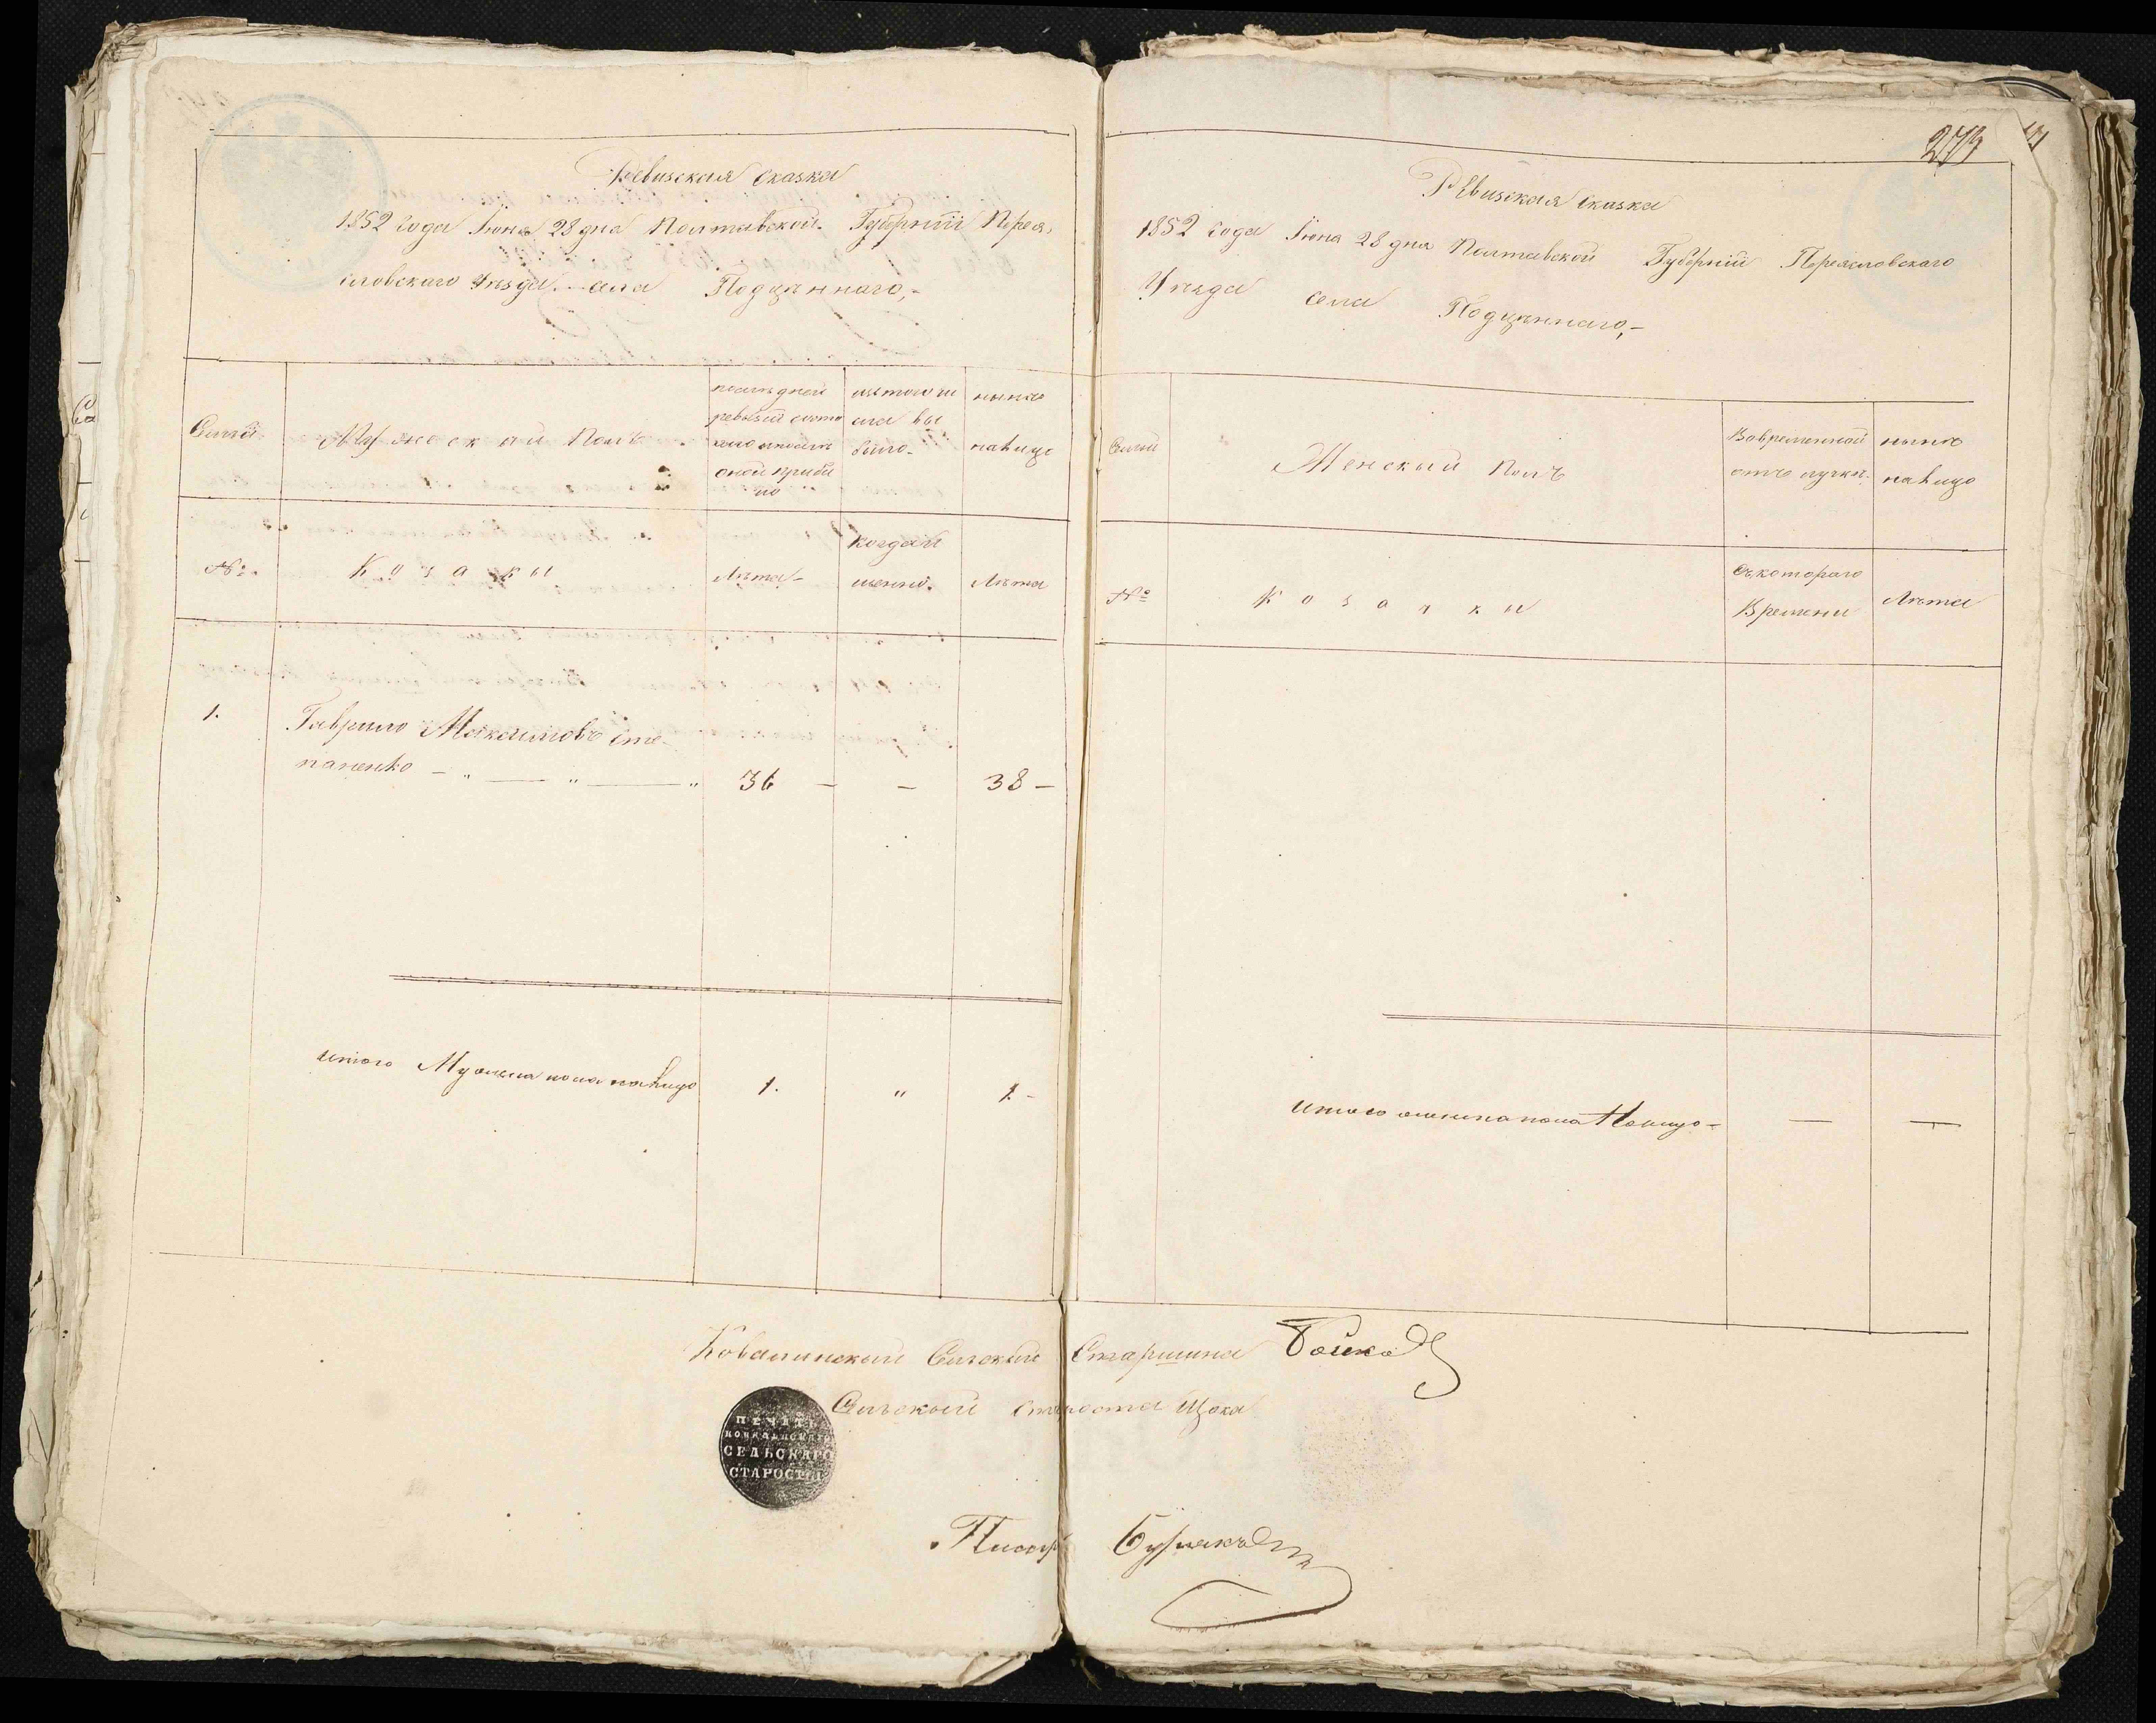 Ревизская сказка
1852 года Іюня 28 дня Полтавской Губерніи Перея-
словского Уезда села Подценнаго,-
Семьи
Мужеской Полъ
последней
ревизіи состо
яло и после
оной прибы
ло
изъ того чи
сла вы
было.
ныне
налицо
№
Козаки
Лета
когда и
именно.
Лета
1.
Гаврило Максимовъ Сте-
паненко - „ — „ — „ 36 - - 38 -
итого Мужеска пола налицо 1. „ 1. -
273
Ревизская сказка
1852 года Іюня 28 дня Полтавской Губерніи Переясловскаго
Уезда села Подценнаго,-
Семьи
Женский Полъ
Во временной
отлучке
ныне
налицо
№
Козачки
Съ котораго
Времени
Лета
итого женска пола Налицо - — —
Ковалинский Сельский Старшина Бойко
Сельский староста Щока
ПЕЧАТЬ
КОВАЛИНСКАГО
СЕЛЬСКАГО
СТАРОСТЫ
Писарь